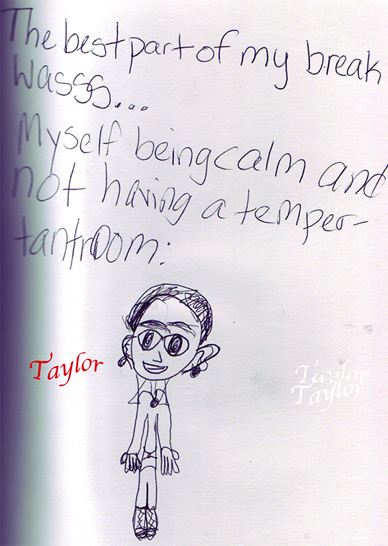 The best part of my break
wasss...
Myself being calm and
not having a temper-
tantroom:
Taylor
Taylor
Taylor